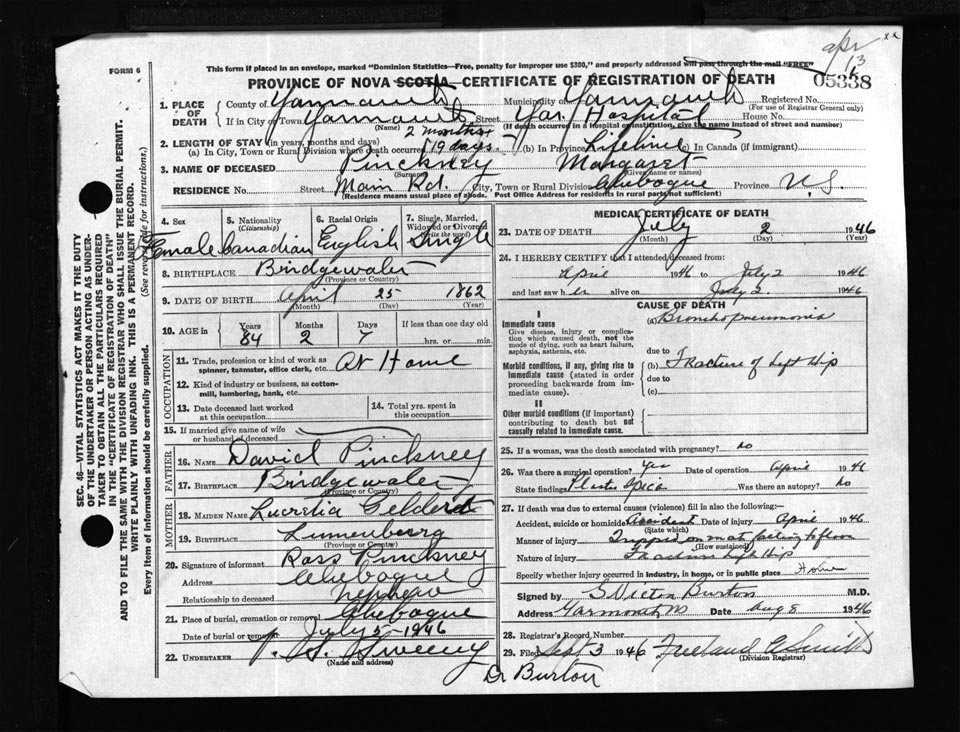 apr 13 xx
FORM 6
This form if placed in an envelope, marked "Dominion Statistics—Free, penalty for improper use $300," and properly addressed will pass through the mail "FREE"
PROVINCE OF NOVA SCOTIA—CERTIFICATE OF REGISTRATION OF DEATH
05338
1. PLACE OF DEATH
County of Yarmouth Municipality of Yarmouth Registered No.
(For use of Registrar General only)
If in City or Town Yarmouth Street Yar. Hospital House No.
(Name) (If death occurred in a hospital or institution, give the name instead of street and number)
2. LENGTH OF STAY (in years, months and days) 2 months
(a) In City, Town or Rural Division where death occurred 19 days. (b) In Province Lifetime In Canada (if immigrant)
3. NAME OF DECEASED Pinckney Margaret
(Surname) (Given name or names)
RESIDENCE No. Street Main Rd. City, Town or Rural Division Chebogue Province N.S.
(Residence means usual place of abode. Post Office Address for residents in rural parts not sufficient)
4. Sex
Female
5. Nationality
(Citizenship)
Canadian
6. Racial Origin
English
7. Single, Married, Widowed or Divorced
(write the word)
Single
8. BIRTHPLACE Bridgewater
(Province or Country)
9. DATE OF BIRTH April 25 1862
(Month) (Day) (Year)
10. AGE in Years Months Days If less than one day old
84 2 7 hrs. or min.
OCCUPATION
11. Trade, profession or kind of work as spinner, teamster, office clerk, etc. At Home
12. Kind of industry or business, as cotton-mill, lumbering, bank, etc.
13. Date deceased last worked at this occupation
14. Total yrs. spent in this occupation
15. If married give name of wife or husband of deceased
FATHER
16. NAME David Pinckney
17. BIRTHPLACE Bridgewater
(Province or Country)
MOTHER
18. MAIDEN NAME Lucretia Geldert
19. BIRTHPLACE Lunenburg
(Province or Country)
20. Signature of informant Ross Pinckney
Address Chebogue
Relationship to deceased nephew
21. Place of burial, cremation or removal Chebogue
Date of burial or removal July 5 1946
22. UNDERTAKER V. S. Sweeny
(Name and address)
MEDICAL CERTIFICATE OF DEATH
23. DATE OF DEATH July 2 1946
(Month) (Day) (Year)
24. I HEREBY CERTIFY that I attended deceased from:
April 1946 to July 2 1946
and last saw her alive on July 2. 1946
CAUSE OF DEATH
I
Immediate cause
Give disease, injury or complication which caused death, not the mode of dying, such as heart failure, asphyxia, asthenia, etc.
(a) Bronchopneumonia
due to
Morbid conditions, if any, giving rise to immediate cause (stated in order proceeding backwards from immediate cause).
(b) Fracture of Left Hip
due to
(c)
II
Other morbid conditions (if important) contributing to death but not causally related to immediate cause.
25. If a woman, was the death associated with pregnancy? No
26. Was there a surgical operation? Yes Date of operation April 1946
State findings Plaster Spica Was there an autopsy? No
27. If death was due to external causes (violence) fill in also the following:—
Accident, suicide or homicide Accident Date of injury April 1946
(State which)
Manner of injury Tripped on mat falling to floor
(How sustained)
Nature of injury Fracture left hip
Specify whether injury occurred in industry, in home, or in public place Home
Signed by S Victor Burton M.D.
Address Yarmouth Date Aug 8 1946
28. Registrar's Record Number
29. Filed Sept 3 1946
(Division Registrar)
Dr Burton
SEC. 46—VITAL STATISTICS ACT MAKES IT THE DUTY
OF THE UNDERTAKER OR PERSON ACTING AS UNDER-
TAKER TO OBTAIN ALL THE PARTICULARS REQUIRED
IN THE "CERTIFICATE OF REGISTRATION OF DEATH"
AND TO FILE THE SAME WITH THE DIVISION REGISTRAR WHO SHALL ISSUE THE BURIAL PERMIT.
WRITE PLAINLY WITH UNFADING INK. THIS IS A PERMANENT RECORD.
Every item of information should be carefully supplied. (See reverse side for instructions.)